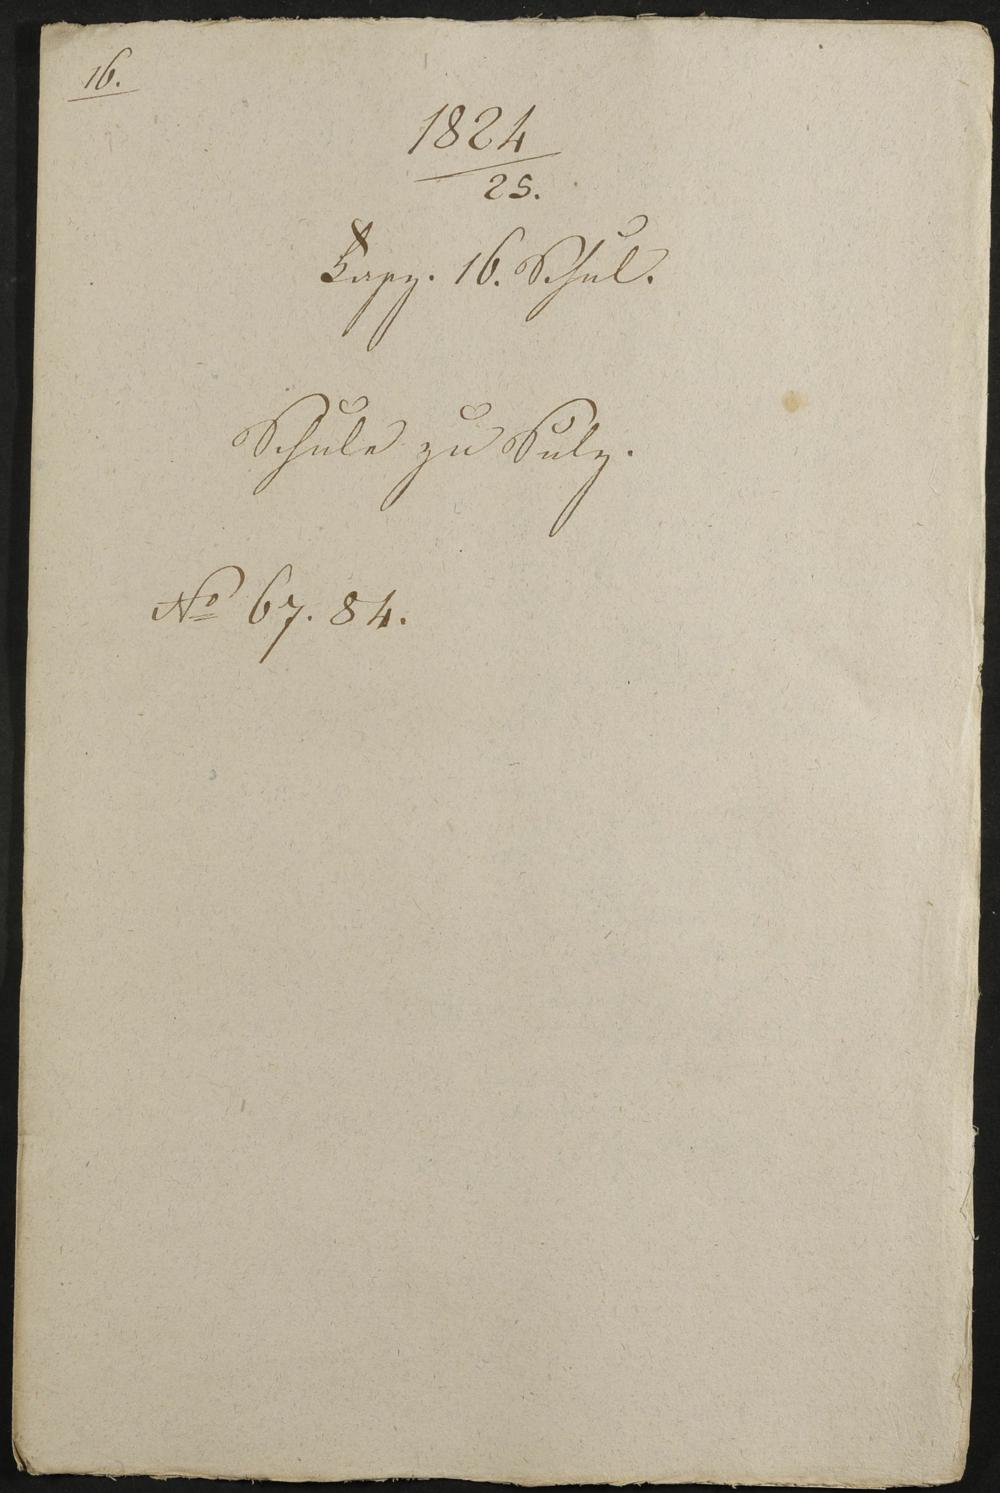 16.
1824
25.
Kapp. 16. Schul.
Schule zu Sulz.
No 67. 84.